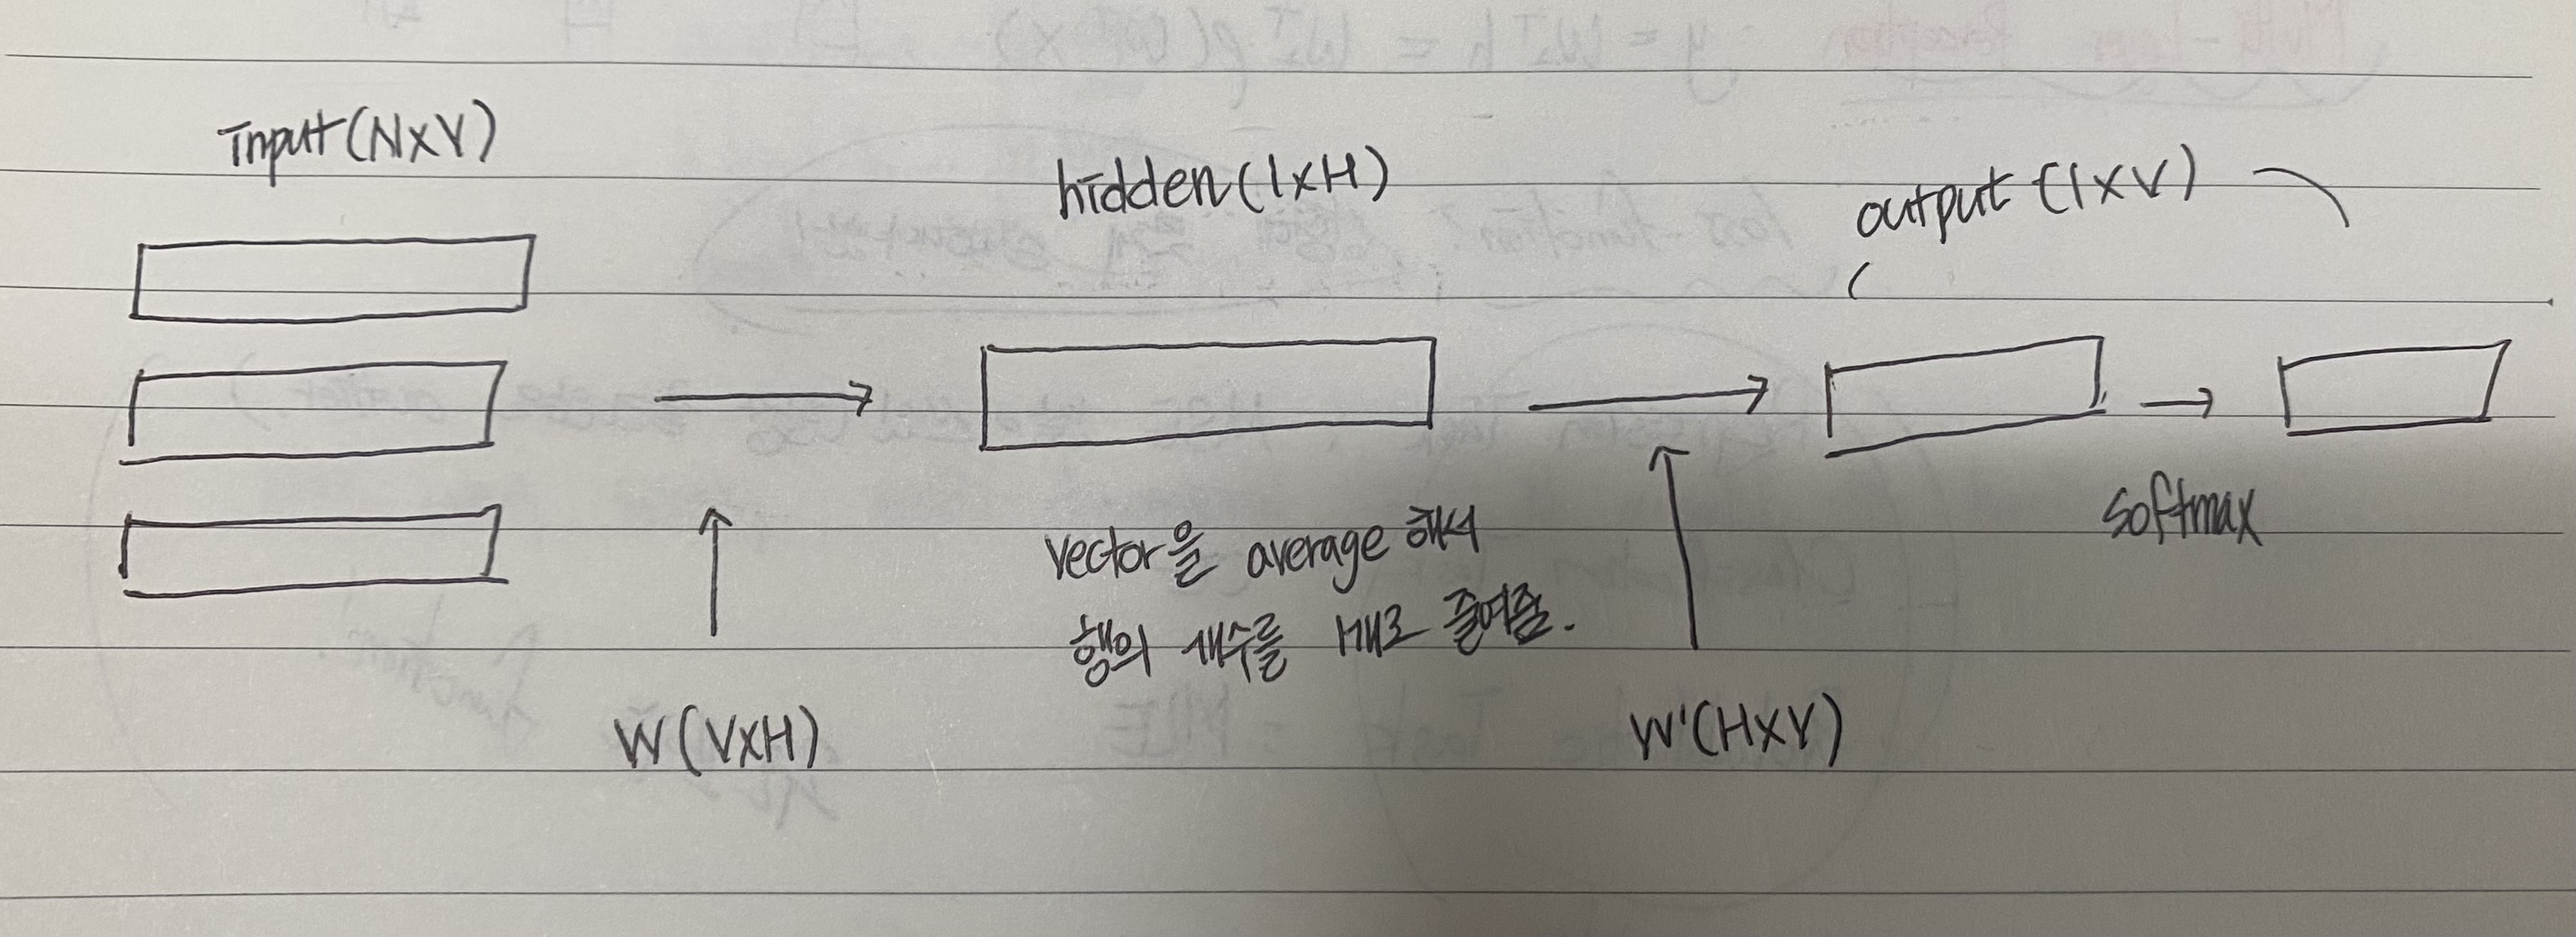 input(N×V)
hidden(1×H)
output(1×V)
softmax
vector을 average 해서
행의 개수를 1개로 줄여줌.
W(V×H)
W'(H×V)